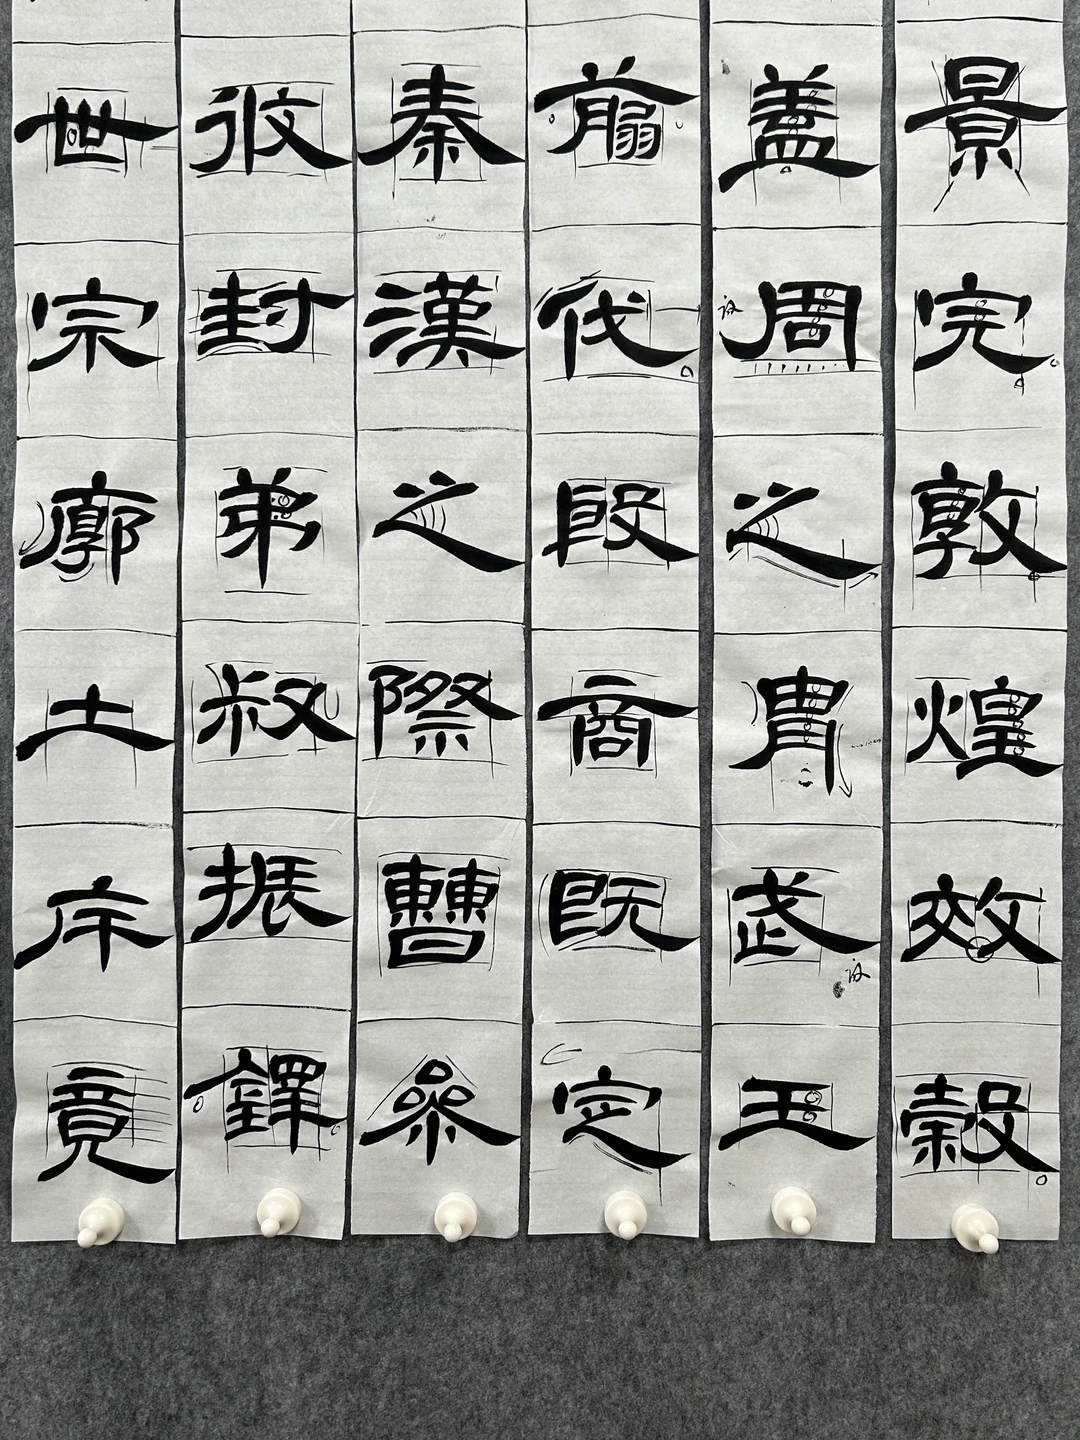 景完敦煌效穀
盖周之胄武王
翦伐殷商既定
秦漢之際曹參
攸封弟叔振鐸
世宗廓土斥竟